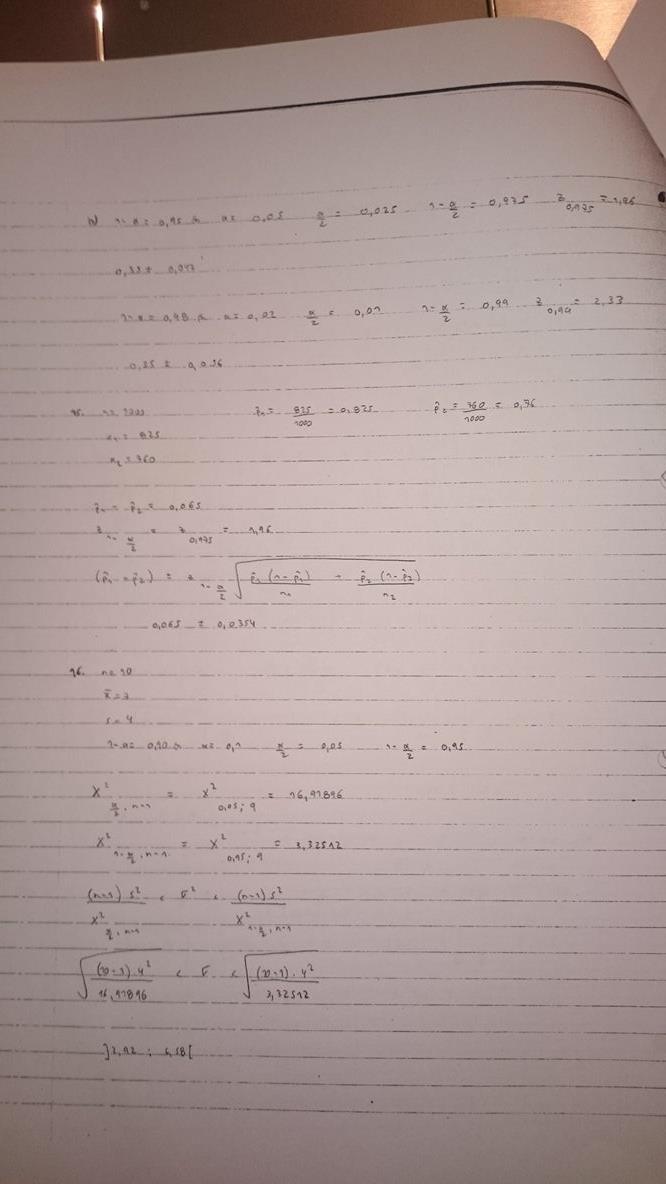 b) 1-α = 0,95 α = 0,05 α/2 = 0,025 1-α/2 = 0,975 z 0,975 = 1,96
1-α = 0,98 α = 0,02 α/2 = 0,01 1-α/2 = 0,99 z 0,99 = 2,33
0,35 ± 0,056
p̂1 = 825/1000 = 0,825 p̂2 = 760/1000 = 0,76
x1 = 825
x2 = 760
p̂1 - p̂2 = 0,065
z 1-α/2 = z 0,975 = 1,96
(p̂1 - p̂2) ± z 1-α/2 √( p̂1 (1-p̂1)/n1 + p̂2 (1-p̂2)/n2 )
0,065 ± 0,0354
16. n = 10
x̄ = 7
s = 4
1-α = 0,90 α = 0,1 α/2 = 0,05 1-α/2 = 0,95
X² α/2, n-1 = X² 0,05; 9 = 16,91896
X² 1-α/2, n-1 = X² 0,95; 9 = 3,32512
(n-1) s² / X² α/2, n-1 < σ² < (n-1) s² / X² 1-α/2, n-1
√( (10-1) · 4² / 16,91896 ) < σ < √( (10-1) · 4² / 3,32512 )
]2,92 ; 6,58[